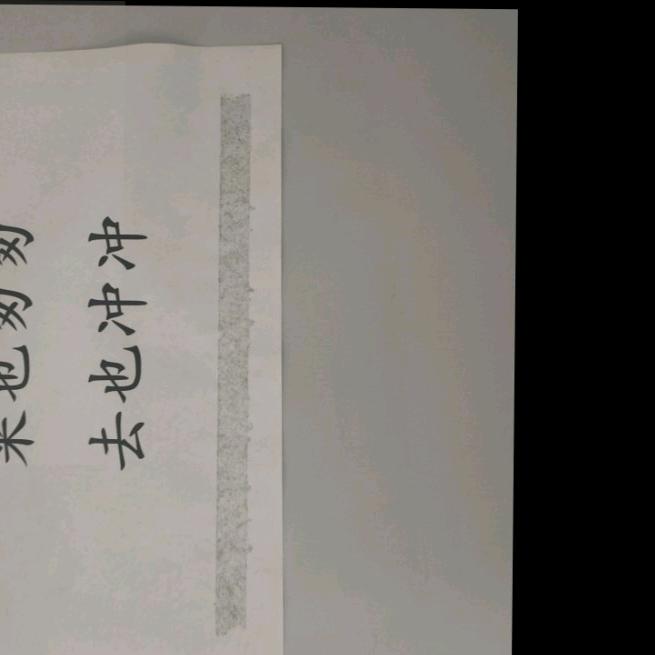 来也匆匆
去也冲冲